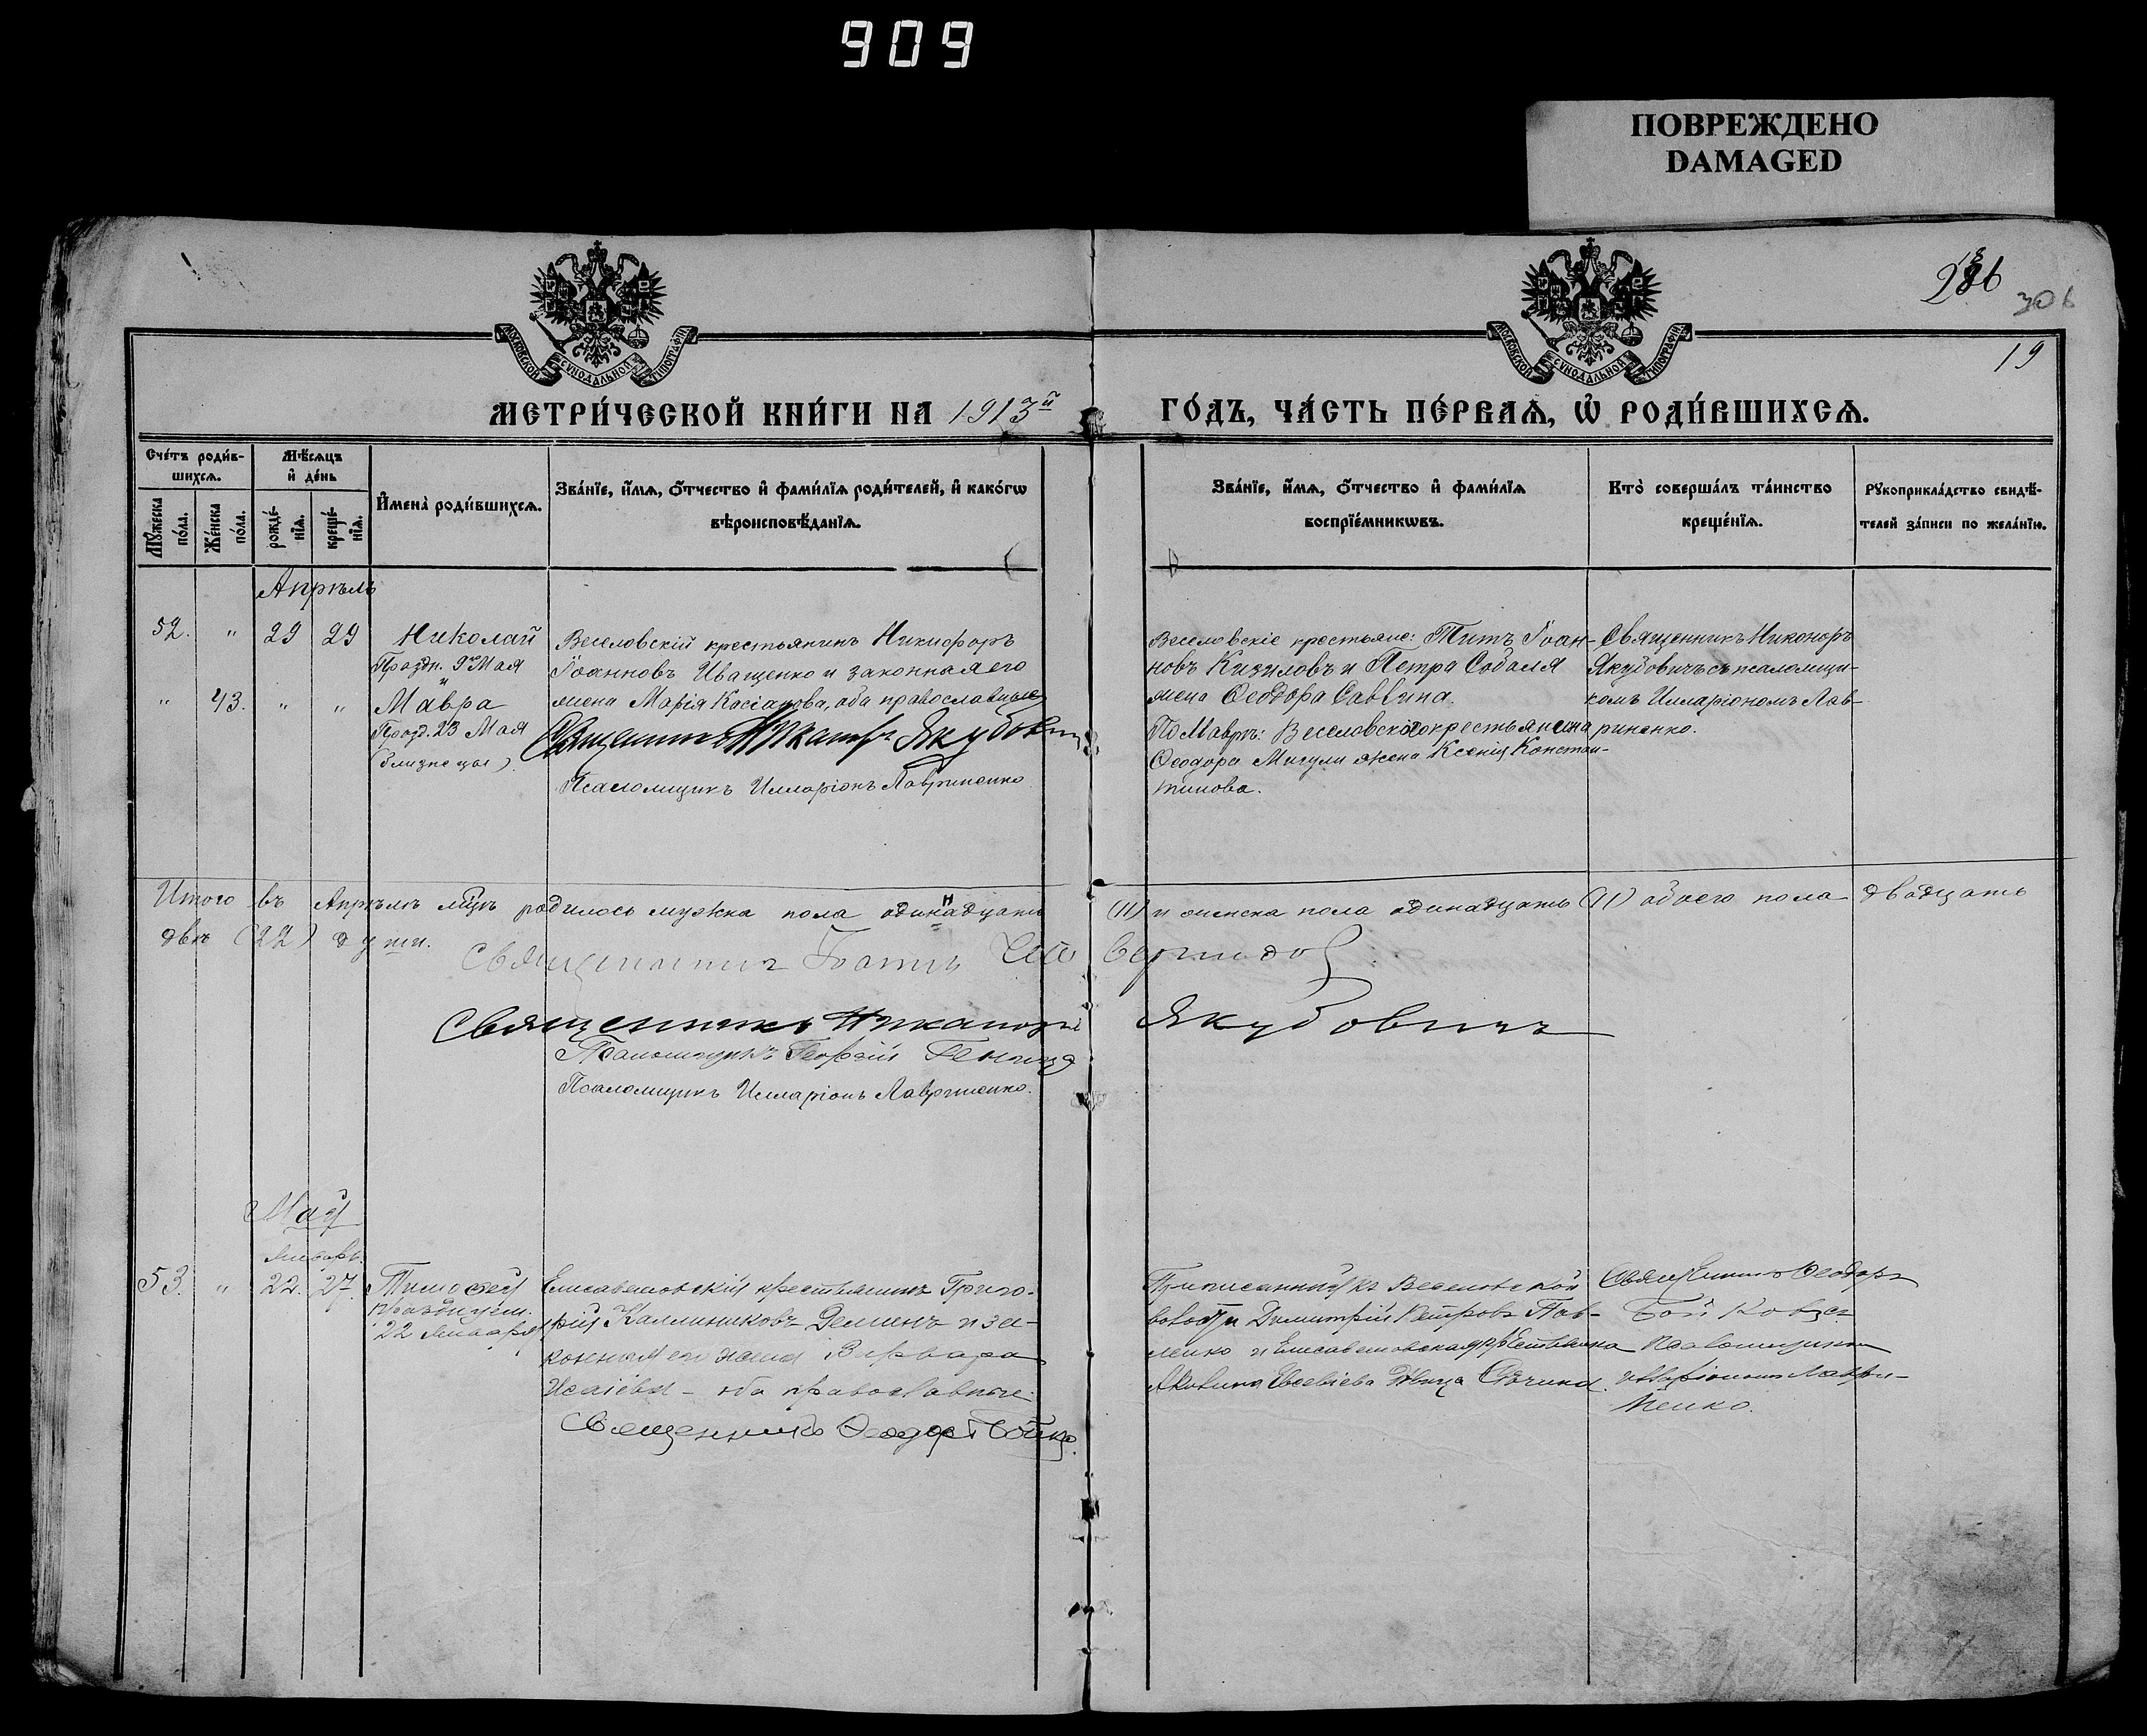 909
ПОВРЕЖДЕНО
DAMAGED
286
306
19
МОСКОВСКОЙ СѴНОДАЛЬНОЙ ТИПОГРАФІИ
МОСКОВСКОЙ СѴНОДАЛЬНОЙ ТИПОГРАФІИ
МЕТРИ́ЧЕСКОЙ КНИ́ГИ НА 1913й
ГО́ДЪ, ЧА́СТЬ ПЕ́РВАѦ, Ѡ҆ РОДИ́ВШИХСѦ.
Сче́тъ роди́в-
шихсѧ.
Мѣ́сѧцъ
и҆ де́нь
Мꙋ́жеска
по́ла.
Же́нска
по́ла.
рожде́-
нїѧ.
креще́-
нїѧ.
И҆мена̀ роди́вшихсѧ.
Зва́нїе, и҆́мѧ, ѻ҆́тчество и҆ фами́лїѧ роди́телей, и҆ како́гѡ
вѣроисповѣ́данїѧ.
Зва́нїе, и҆́мѧ, ѻ҆́тчество и҆ фами́лїѧ
воспрїе́мникѡвъ.
Кто̀ соверша́лъ та́инство
креще́нїѧ.
Рꙋкоприкла́дство свидѣ́-
телей за́писи по жела́нїю.
Апрѣль
52. " 29 29 Николай
Праздн. 9го Мая
" 43. " " Мавра
Празд. 23 Мая
(близнецы)
Веселовскій крестьянинъ Никифоръ
Іоанновъ Иващенко и законная его
жена Марія Касіанова, оба православные
Священникъ Никаноръ Якубовичъ
Псаломщикъ Илларіонъ Лавриненко
Веселовскіе крестьяне: Титъ Іоан-
новъ Кизиловъ и Петра Собаля
жена Ѳеодора Саввина.
По Маврѣ: Веселовского крестьянина
Ѳеодора Мигули жена Ксенія Констан-
тинова.
Священникъ Никоноръ
Якубовичъ съ псаломщи-
комъ Илларіономъ Лав-
риненко.
Итого въ Апрѣлѣ мцѣ родилось мужска пола одинадцать (11) и женска пола одинадцать (11) обоего пола двадцать
двѣ (22) души.
Священникъ Іоаннъ
Священникъ Никаноръ Якубовичъ
Псаломщикъ Георгій
Псаломщикъ Илларіонъ Лавриненко.
Май
Январь.
53. " 22. 27. Тимофей
празднуем.
22 Января
Елисаветовскій крестьянинъ Григо-
рій Каллиниковъ Деминъ и за-
конная его жена Варвара
Исаіева - оба православные.
Священникъ Ѳеодоръ Бойко.
Приписанный къ Веселовской
волости Димитрій Петровъ Пав-
ленко и Елисаветовская крестьянка
Акилина Евсевіева дѣвица
Священникъ Ѳеодоръ
Бойко съ
псаломщикомъ
Илларіономъ Лаври-
ненко.